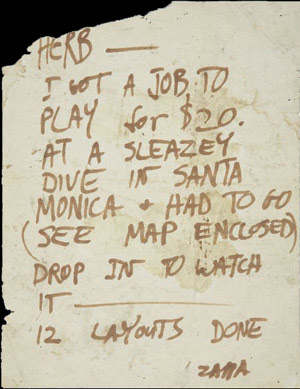 HERB —
I GOT A JOB TO
PLAY for $20.
AT A SLEAZEY
DIVE IN SANTA
MONICA + HAD TO GO
(SEE MAP ENCLOSED)
DROP IN TO WATCH
IT —
12 LAYOUTS DONE
ZAPPA